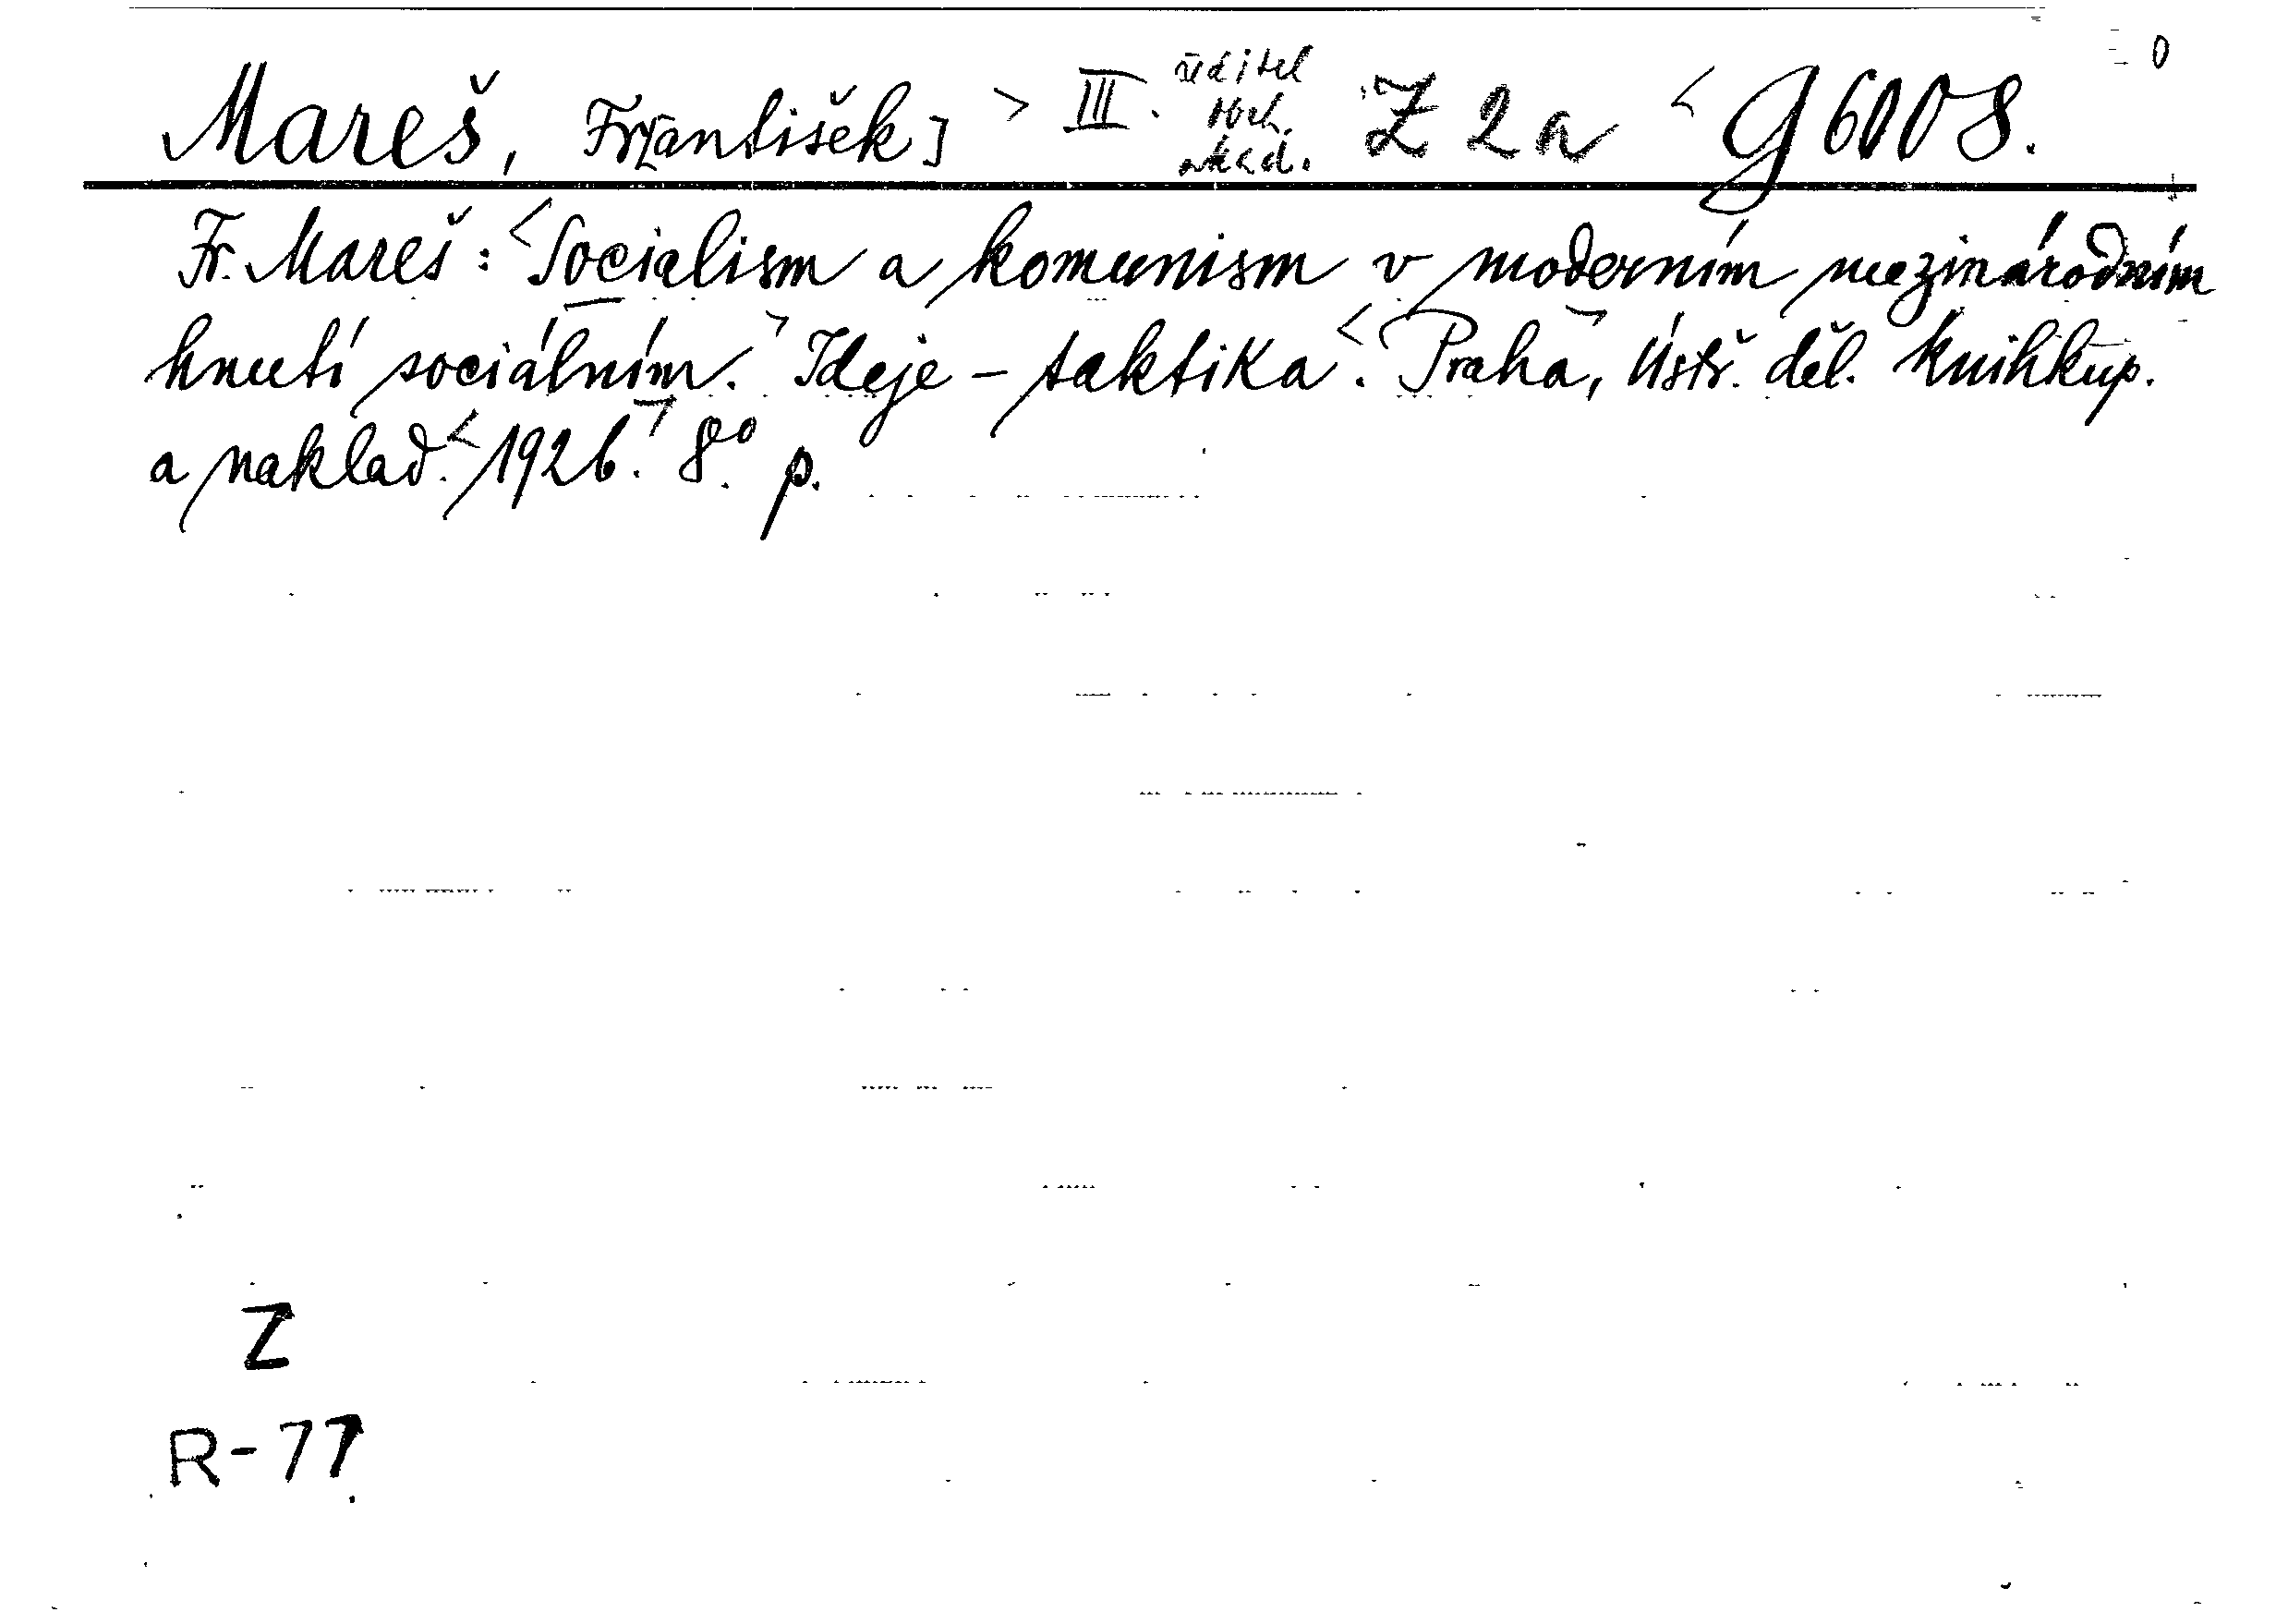 Mareš, Fr[antišek] > III. ředitel obch. akad. Z 2 a < g 6008.
Fr. Mareš: <Socialism a komunism v moderním mezinárodním
hnutí sociálním.> Ideje - taktika<. Praha>, Ústř. děl. knihkup.
a naklad.< 1926.> 8°. p.
Z
R-77